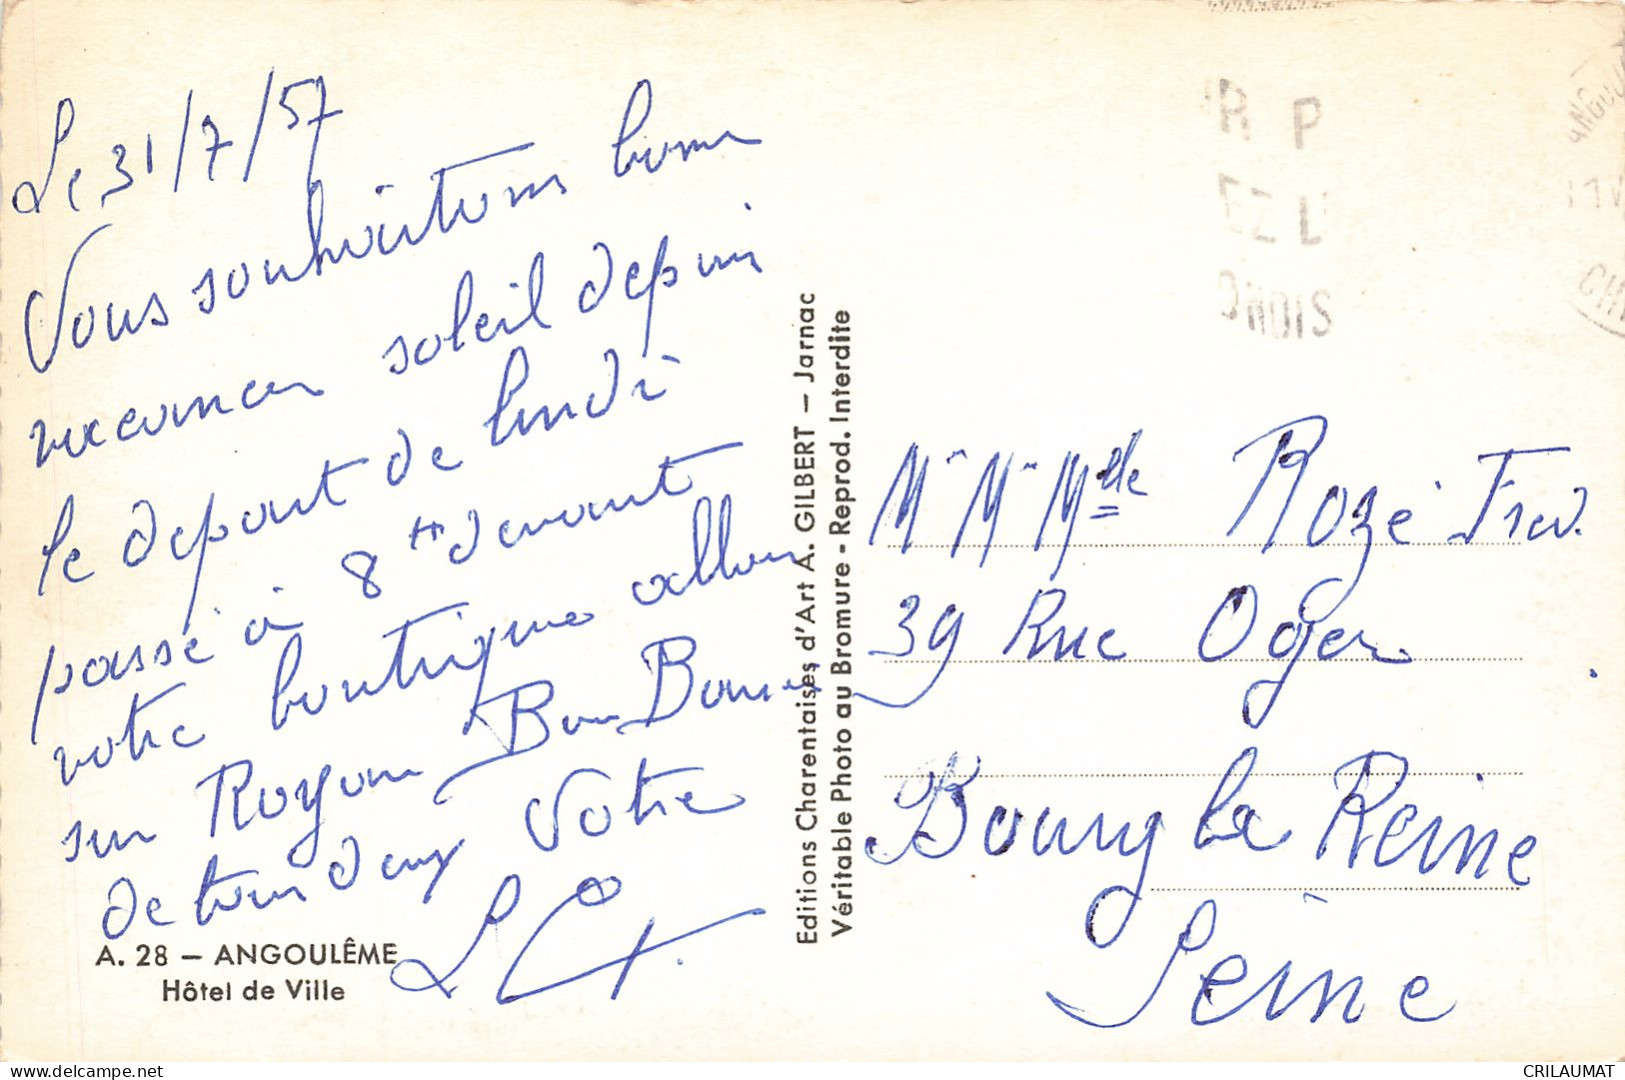 Le 31/7/57
Vous souhaitons bonne
vacances soleil depuis
le depart de lundi
passé à 8 devant
votre boutique allons
sur Royan Bon Bons
de tous deux Votre
A. 28 — ANGOULÊME
Hôtel de Ville
Editions Charentaises d'Art A. GILBERT — Jarnac
Véritable Photo au Bromure - Reprod. Interdite
R P
EZ L
ONDIS
ANGOU
Mr Mr Mlle Rozé
39 Rue Oger
Bourg la Reine
Seine
delcampe.net
CRILAUMAT